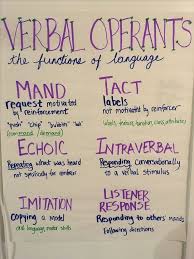 VERBAL OPERANTS
the functions of language
MAND
request motivated
by reinforcement
"push" "chip" "bubbles"
(command / demand)
TACT
labels
not motivated by reinforcer
labels, feature, function, class, attributes
ECHOIC
Repeating what was heard
not specifically for intent
INTRAVERBAL
Responding conversationally
to a verbal stimulus
IMITATION
Copying a model
oral language, motor skills
LISTENER
RESPONSE
Responding to others' mands
Following directions